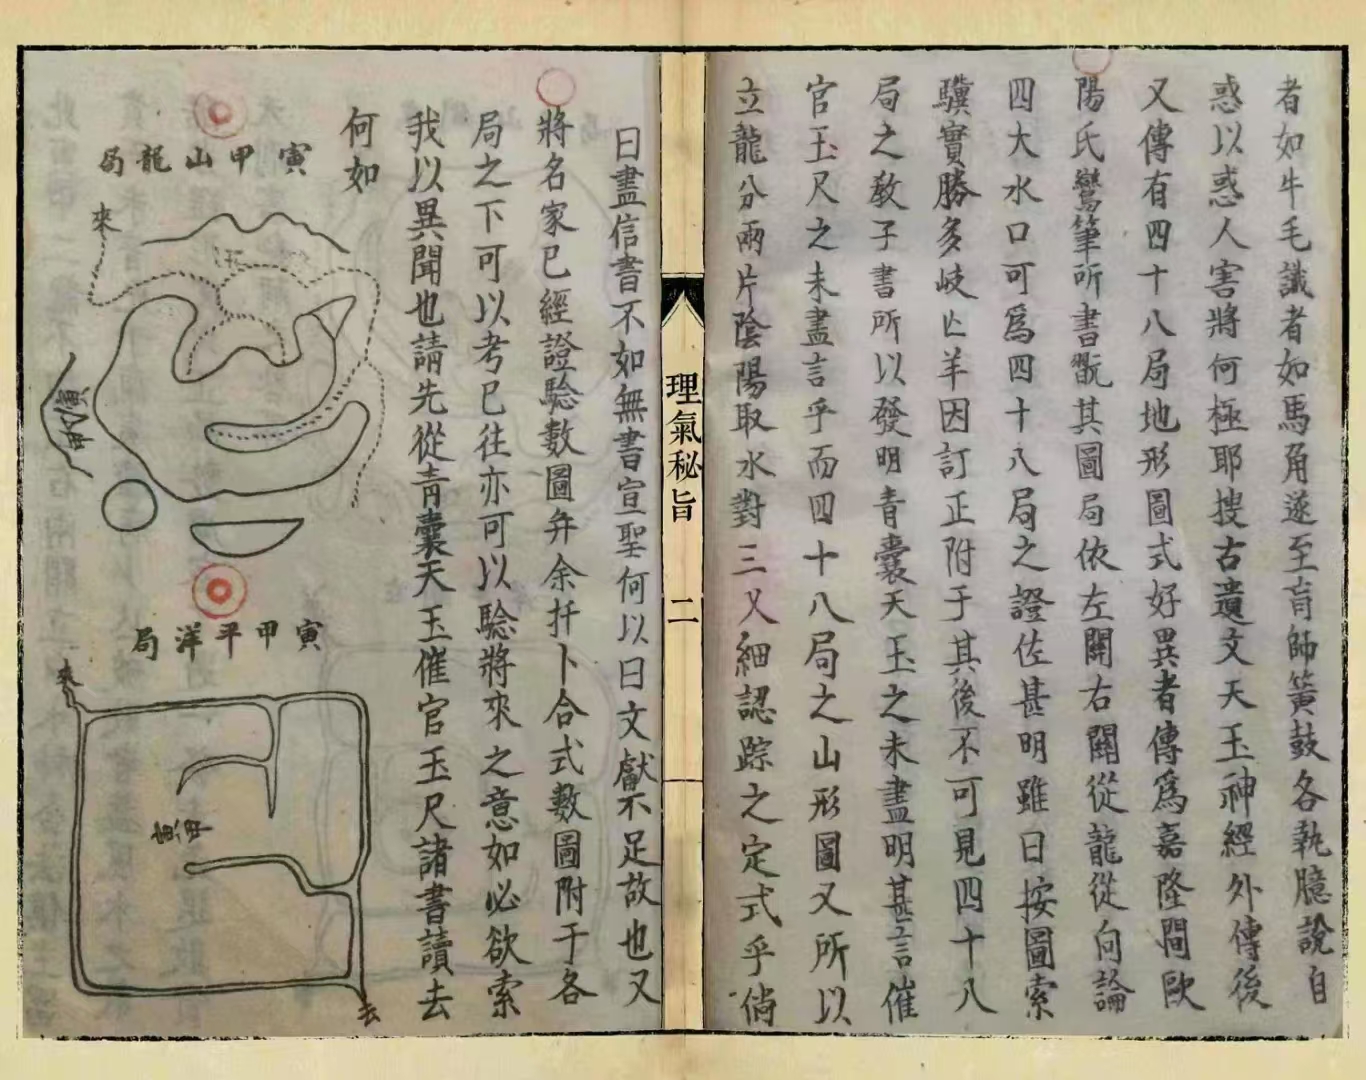 者如牛毛識者如馬角遂至盲師簧鼓各執臆說自
惑以惑人害將何極耶搜古遺文天玉神經外傳後
又傳有四十八局地形圖式好異者傳為嘉隆間歐
陽氏鸞筆所書翫其圖局依左關右關從龍從向論
四大水口可為四十八局之證佐甚明雖曰按圖索
驥實勝多岐亡羊因訂正附于其後不可見四十八
局之教子書所以發明青囊天玉之未盡明甚言催
官玉尺之未盡言乎而四十八局之山形圖又所以
立龍分兩片陰陽取水對三乂細認踪之定式乎倘
理氣秘旨
二
曰盡信書不如無書宣聖何以曰文獻不足故也又
將名家已經證驗數圖弁余扦卜合式數圖附于各
局之下可以考已往亦可以驗將來之意如必欲索
我以異聞也請先從青囊天玉催官玉尺諸書讀去
何如
寅甲山龍局
來
寅甲
寅甲平洋局
來
寅甲
去